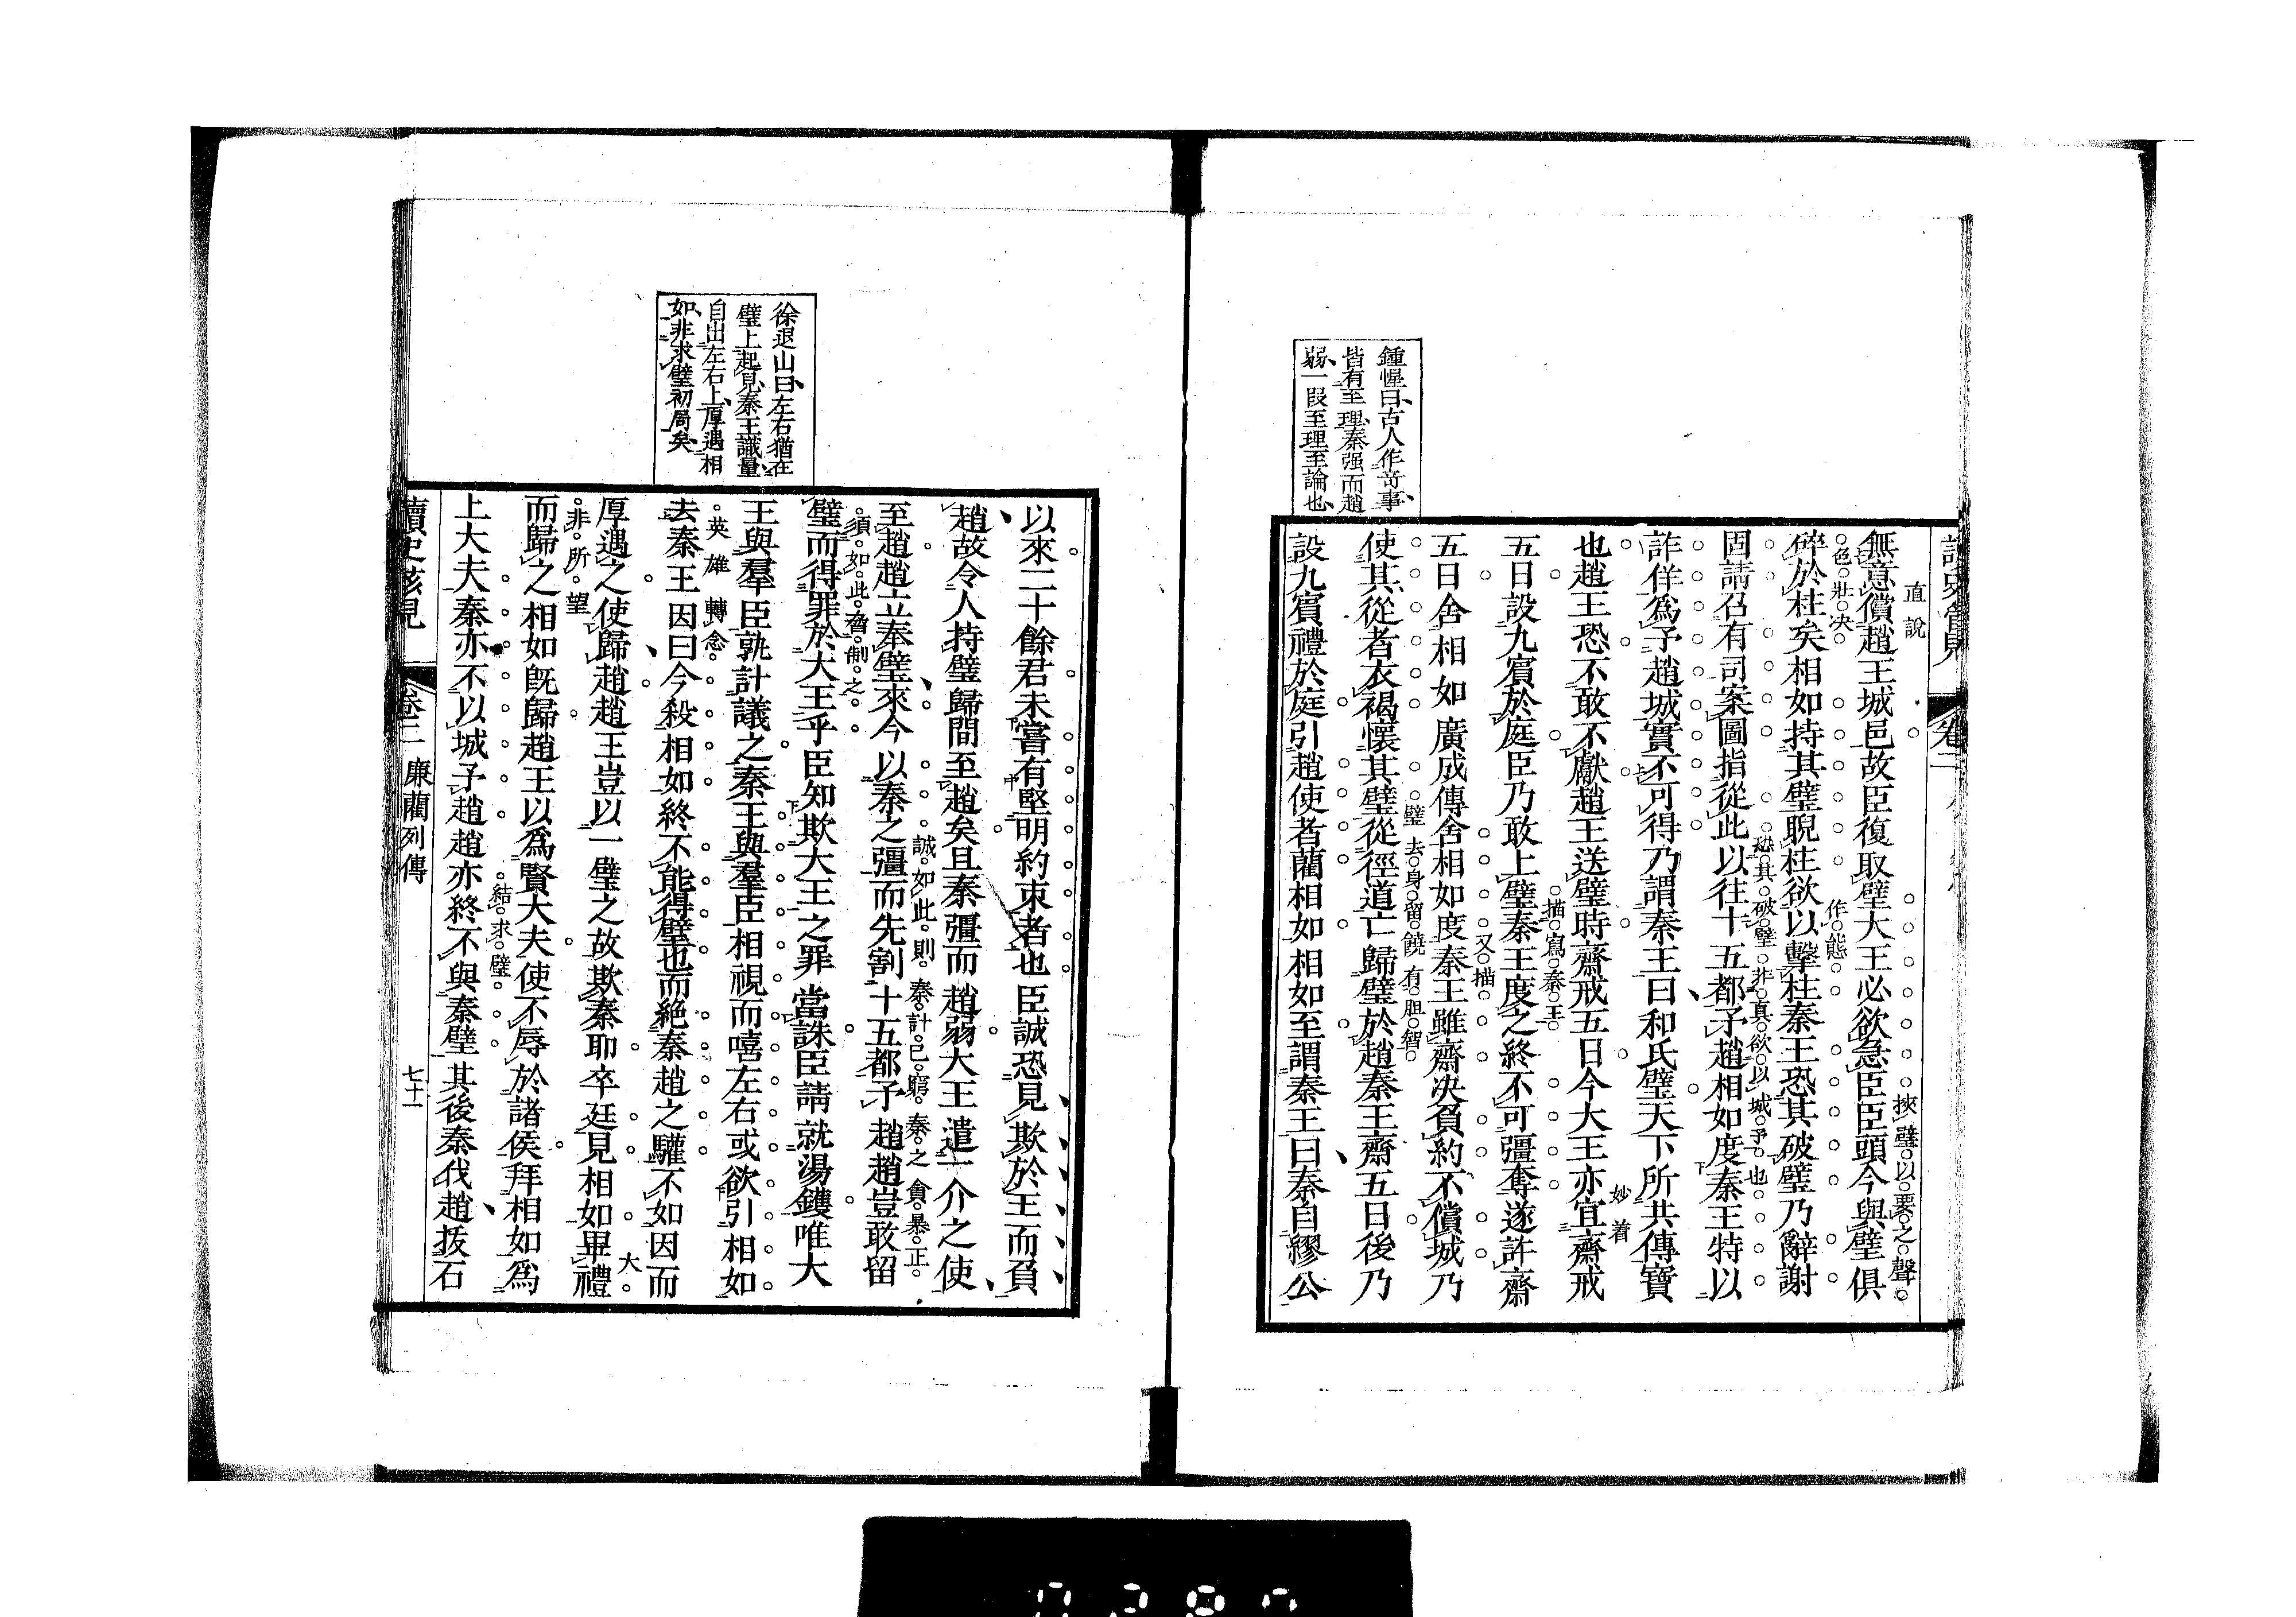 鍾惺曰古人作奇事
皆有至理秦强而趙
弱一段至理至論也
直說
無意償趙王城邑故臣復取璧大王必欲急臣臣頭今與璧俱
挾璧以要之聲
色壯决
作態
碎於柱矣相如持其璧睨柱欲以擊柱秦王恐其破璧乃辭謝
固請召有司案圖指從此以往十五都予趙相如度秦王特以
恐其破璧非真欲以城予也
詐佯爲予趙城實不可得乃謂秦王曰和氏璧天下所共傳寶
妙着
也趙王恐不敢不獻趙王送璧時齋戒五日今大王亦宜齋戒
描寫秦王
五日設九賓於庭臣乃敢上璧秦王度之終不可彊奪遂許齋
又描
五日舍相如廣成傳舍相如度秦王雖齋决負約不償城乃
璧去身留饒有胆智
使其從者衣褐懷其璧從徑道亡歸璧於趙秦王齋五日後乃
設九賓禮於庭引趙使者藺相如相如至謂秦王曰秦自繆公
徐退山曰左右猶在
璧上起見秦王識量
自出左右上厚遇相
如非求璧初局矣
以來二十餘君未嘗有堅明約束者也臣誠恐見欺於王而負
趙故令人持璧歸間至趙矣且秦彊而趙弱大王遣一介之使
誠如此則秦計已窮秦之貪暴正
至趙趙立奉璧來今以秦之彊而先割十五都予趙趙豈敢留
須如此制之
璧而得罪於大王乎臣知欺大王之罪當誅臣請就湯鑊唯大
王與羣臣孰計議之秦王與羣臣相視而嘻左右或欲引相如
英雄轉念
去秦王因曰今殺相如終不能得璧也而絶秦趙之驩不如因而
大
厚遇之使歸趙趙王豈以一璧之故欺秦耶卒廷見相如畢禮
非所望
而歸之相如既歸趙王以爲賢大夫使不辱於諸侯拜相如爲
結求璧
上大夫秦亦不以城予趙趙亦終不與秦璧其後秦伐趙拔石
卷二
廉藺列傳
七十一